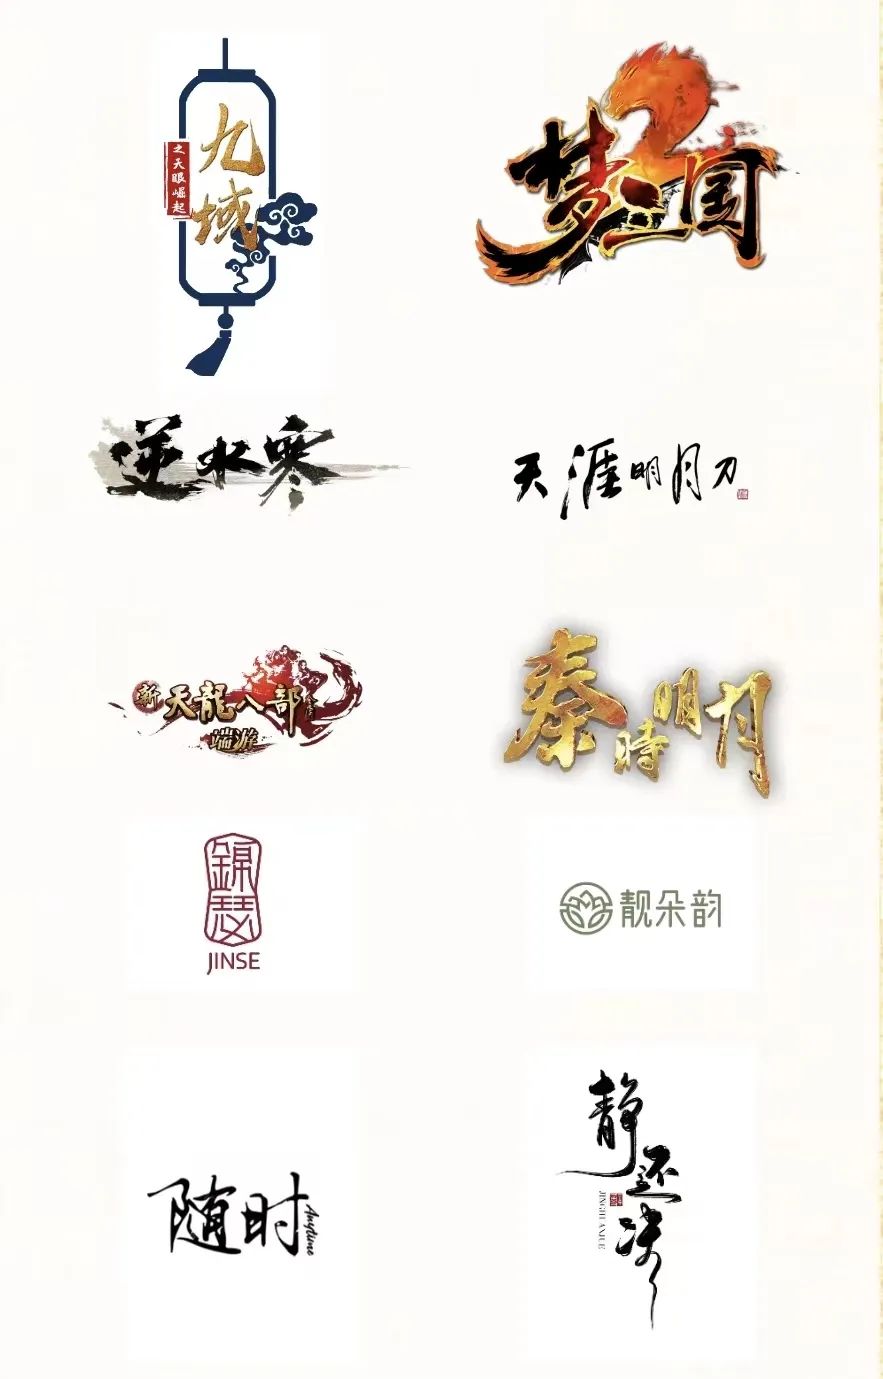 九域
之天眼崛起
梦三国2
逆水寒
天涯明月刀
新天龍八部
端游
秦時明月
錦瑟
JINSE
靚朵韵
随时
Anytime
静还决
JINGHUANJUE